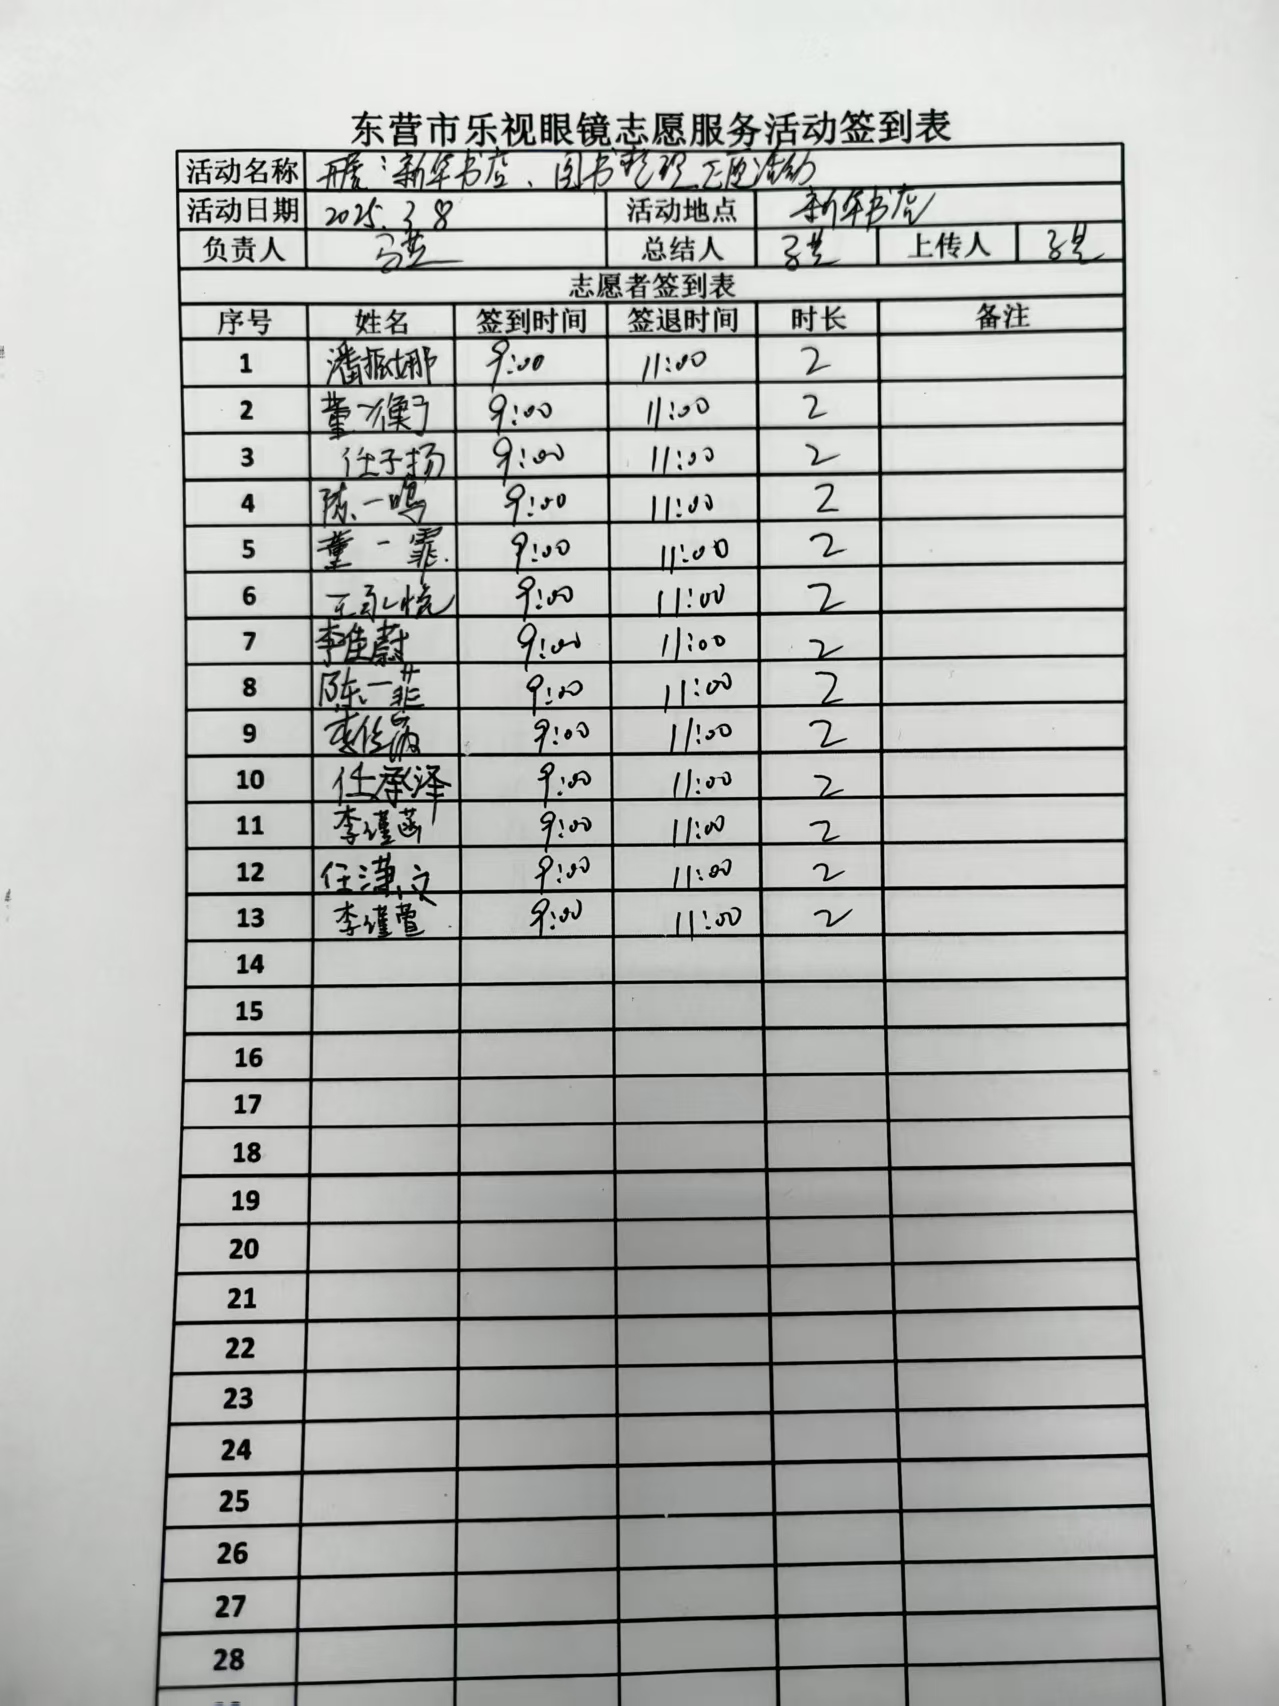 东营市乐视眼镜志愿服务活动签到表
活动名称 开展：新华书店、图书整理志愿活动
活动日期 2025.3.8 活动地点 新华书店
负责人 总结人 上传人
志愿者签到表
序号 姓名 签到时间 签退时间 时长 备注
1 潘振娜 9:00 11:00 2
2 董一衡 9:00 11:00 2
3 任子扬 9:00 11:00 2
4 陈一鸣 9:00 11:00 2
5 董一霏 9:00 11:00 2
6 王永悦 9:00 11:00 2
7 李佳蔚 9:00 11:00 2
8 陈一菲 9:00 11:00 2
9 9:00 11:00 2
10 任承泽 9:00 11:00 2
11 李瑾菡 9:00 11:00 2
12 任潇文 9:00 11:00 2
13 李瑾萱 9:00 11:00 2
14
15
16
17
18
19
20
21
22
23
24
25
26
27
28